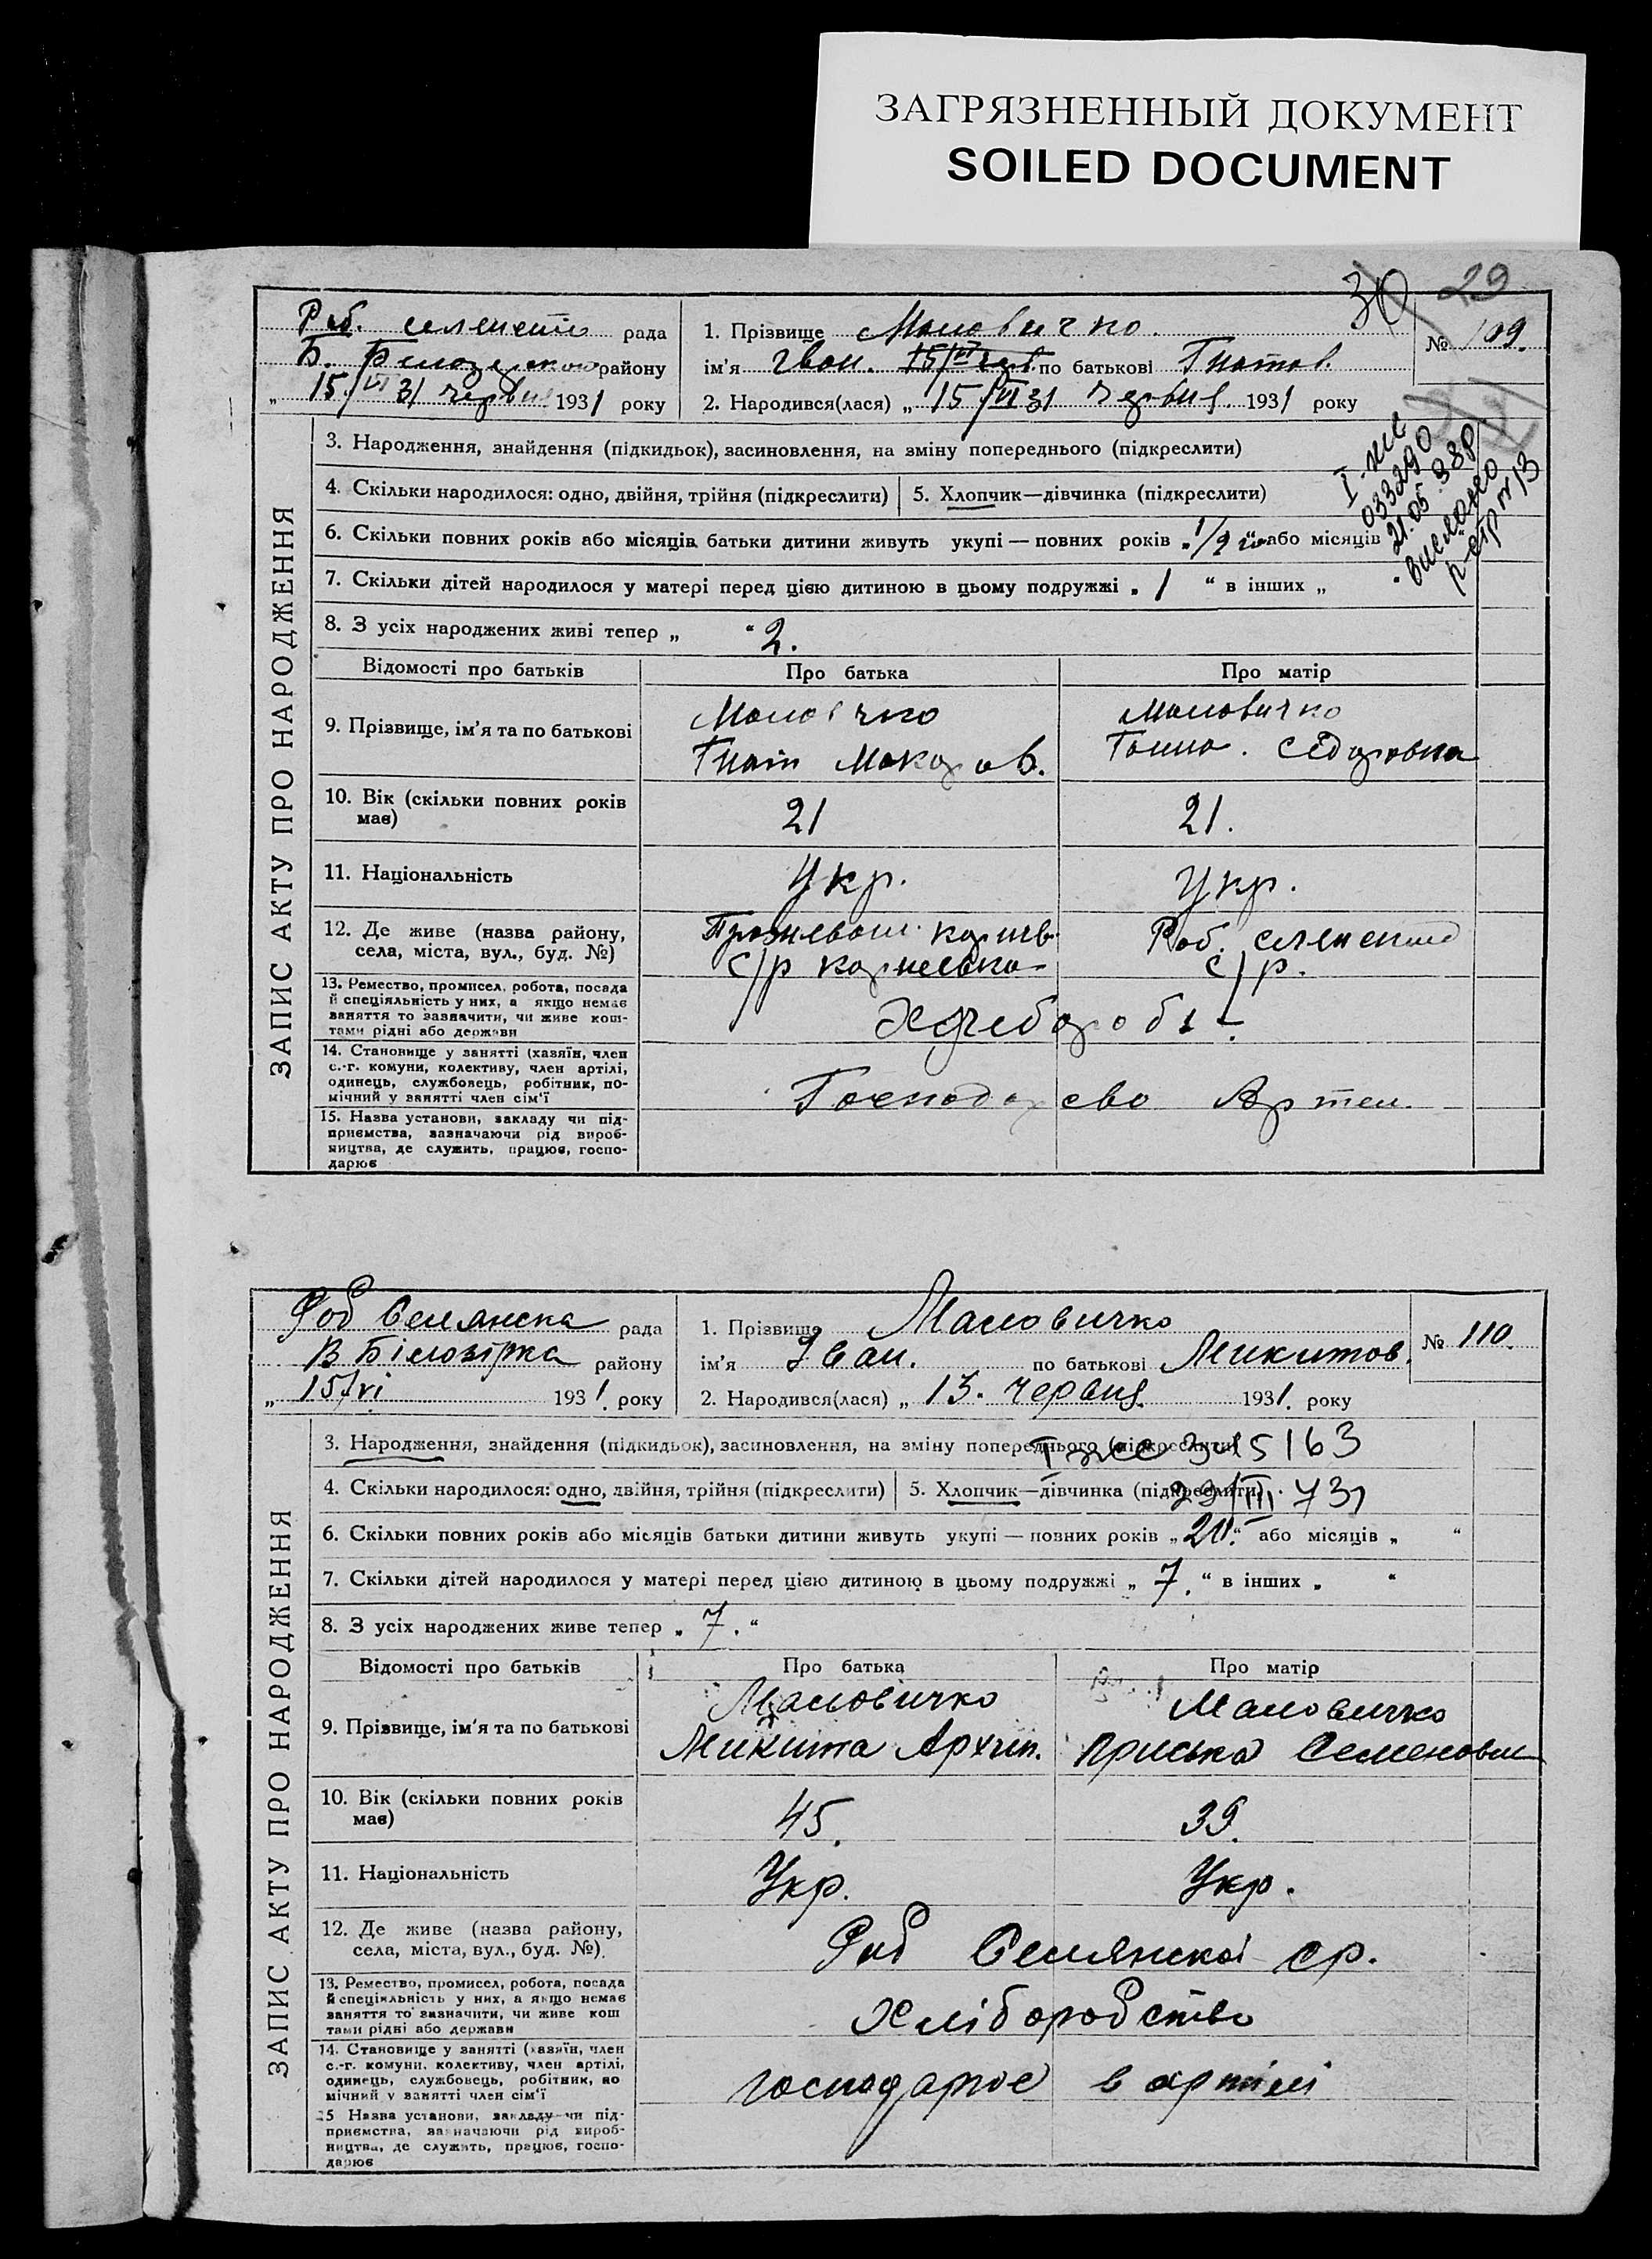 ЗАГРЯЗНЕННЫЙ ДОКУМЕНТ
SOILED DOCUMENT
30 29
Раб. рада
Б. району
15/VI 31 червня 1931 року
1. Прізвище Маловичко
ім’я Іван. по батькові Гнатов.
2. Народився(лася) „ 15/VI 31 червня 1931 року
№ 109.
ЗАПИС АКТУ ПРО НАРОДЖЕННЯ
3. Народження, знайдення (підкидьок), засиновлення, на зміну попереднього (підкреслити)
4. Скільки народилося: одно, двійня, трійня (підкреслити) 5. Хлопчик—дівчинка (підкреслити)
6. Скільки повних років або місяців батьки дитини живуть укупі — повних років „ або місяців
7. Скільки дітей народилося у матері перед цією дитиною в цьому подружжі „ 1 “ в інших „
8. З усіх народжених живі тепер „ “ 2.
I-ЖС
033290
21.05.
вислано
Відомості про батьків Про батька Про матір
9. Прізвище, ім’я та по батькові
Маловичко
Гнат Макаров.
Маловичко
Ганна. Сидоровна
10. Вік (скільки повних років має) 21 21.
11. Національність Укр. Укр.
12. Де живе (назва району,
села, міста, вул., буд. №)
с/р
Раб.
с/р.
13. Ремество, промисел, робота, посада
й спеціяльність у них, а якщо немає
заняття то зазначити, чи живе кош-
тами рідні або держави
Хлебороби
14. Становище у занятті (хазяїн, член
с.-г. комуни, колективу, член артілі,
одинець, службовець, робітник, по-
мічний у занятті член сім’ї
Артел.
15. Назва установи, закладу чи під-
приємства, зазначаючи рід вироб-
ництва, де служить, працює, госпо-
дарює
Роб Селянска рада
В Білозірка району
„ 15/VI 1931. року
1. Прізвище Маловичко
ім’я Іван. по батькові Микитов.
2. Народився(лася) „ 13. Червня 1931. року
№ 110.
ЗАПИС АКТУ ПРО НАРОДЖЕННЯ
3. Народження, знайдення (підкидьок), засиновлення, на зміну попереднього (підкреслити)
4. Скільки народилося: одно, двійня, трійня (підкреслити) 5. Хлопчик—дівчинка (підкреслити)
6. Скільки повних років або місяців батьки дитини живуть укупі — повних років „ “ або місяців „ “
7. Скільки дітей народилося у матері перед цією дитиною в цьому подружжі „ 7. “ в інших „ “
8. З усіх народжених живе тепер „ 7. “
Відомості про батьків Про батька Про матір
9. Прізвище, ім’я та по батькові
Маловичко
Микита Архип.
Маловичко
Приська Семеновн
10. Вік (скільки повних років має) 45. 39.
11. Національність Укр. Укр.
12. Де живе (назва району,
села, міста, вул., буд. №)
Роб Селянскаі ср.
13. Ремество, промисел, робота, посада
й спеціяльність у них, а якщо немає
заняття то зазначити, чи живе кош
тами рідні або держави
Хліборобство
14. Становище у занятті (хазяїн, член
с.-г. комуни, колективу, член артілі,
одинець, службовець, робітник, по
мічний у занятті член сім’ї
господарює в артілі
15 Назва установи, закладу чи під-
приємства, зазначаючи рід вироб-
ництва, де служить, працює, госпо-
дарює